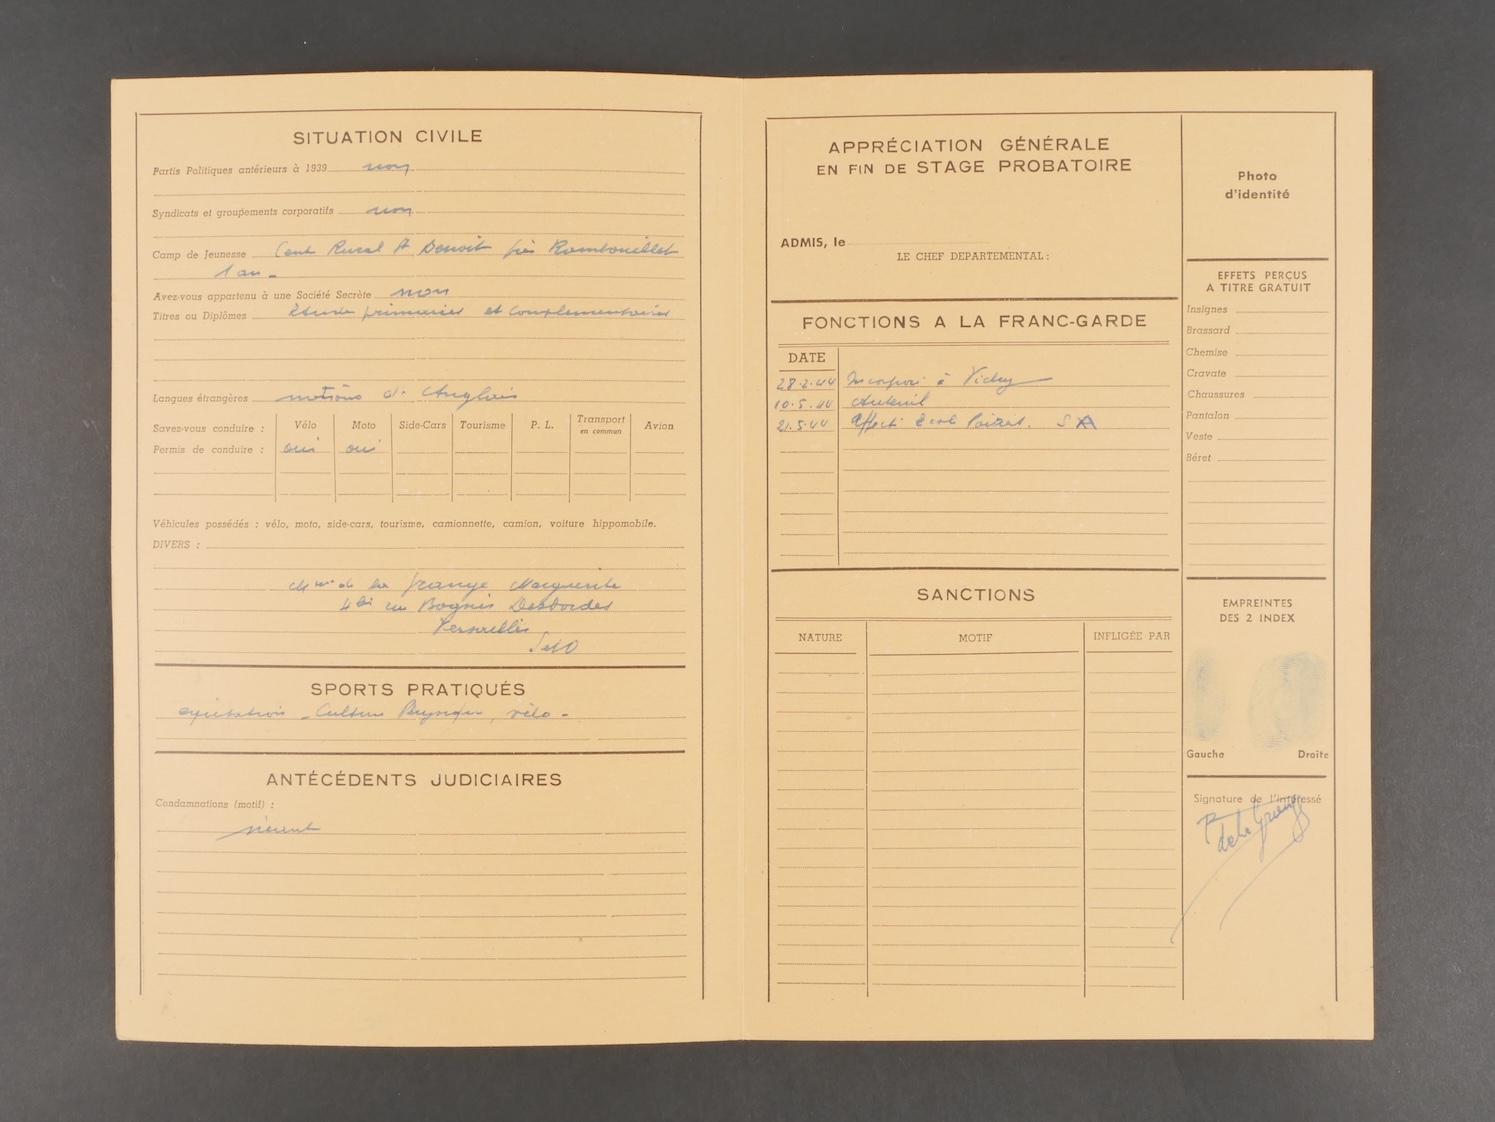 SITUATION CIVILE
Partis Politiques antérieurs à 1939 non
Syndicats et groupements corporatifs non
Camp de Jeunesse Cent Rural A Benoit près Rambouillet
1 an -
Avez-vous appartenu à une Société Secrète non
Titres ou Diplômes Etude primaires et complementaires
Langues étrangères notions d' Anglais
Savez-vous conduire : Vélo Moto Side-Cars Tourisme P. L. Transport en commun Avion
Permis de conduire : oui oui
Véhicules possédés : vélo, moto, side-cars, tourisme, camionnette, camion, voiture hippomobile.
DIVERS :
de la Grange Marguerite
4 bis rue Desbordes
Versailles
S et O
SPORTS PRATIQUÉS
equitation - Culture Physique, vélo -
ANTÉCÉDENTS JUDICIAIRES
Condamnations (motif) :
néant
APPRÉCIATION GÉNÉRALE
EN FIN DE STAGE PROBATOIRE
ADMIS, le
LE CHEF DEPARTEMENTAL :
FONCTIONS A LA FRANC-GARDE
DATE
28.2.44 Incorporé à Vichy
10.5.44 Auteuil
21.5.44 Affecté S A
SANCTIONS
NATURE MOTIF INFLIGÉE PAR
Photo
d'identité
EFFETS PERÇUS
A TITRE GRATUIT
Insignes
Brassard
Chemise
Cravate
Chaussures
Pantalon
Veste
Béret
EMPREINTES
DES 2 INDEX
Gauche Droite
Signature de l'intéressé
P de la Grange